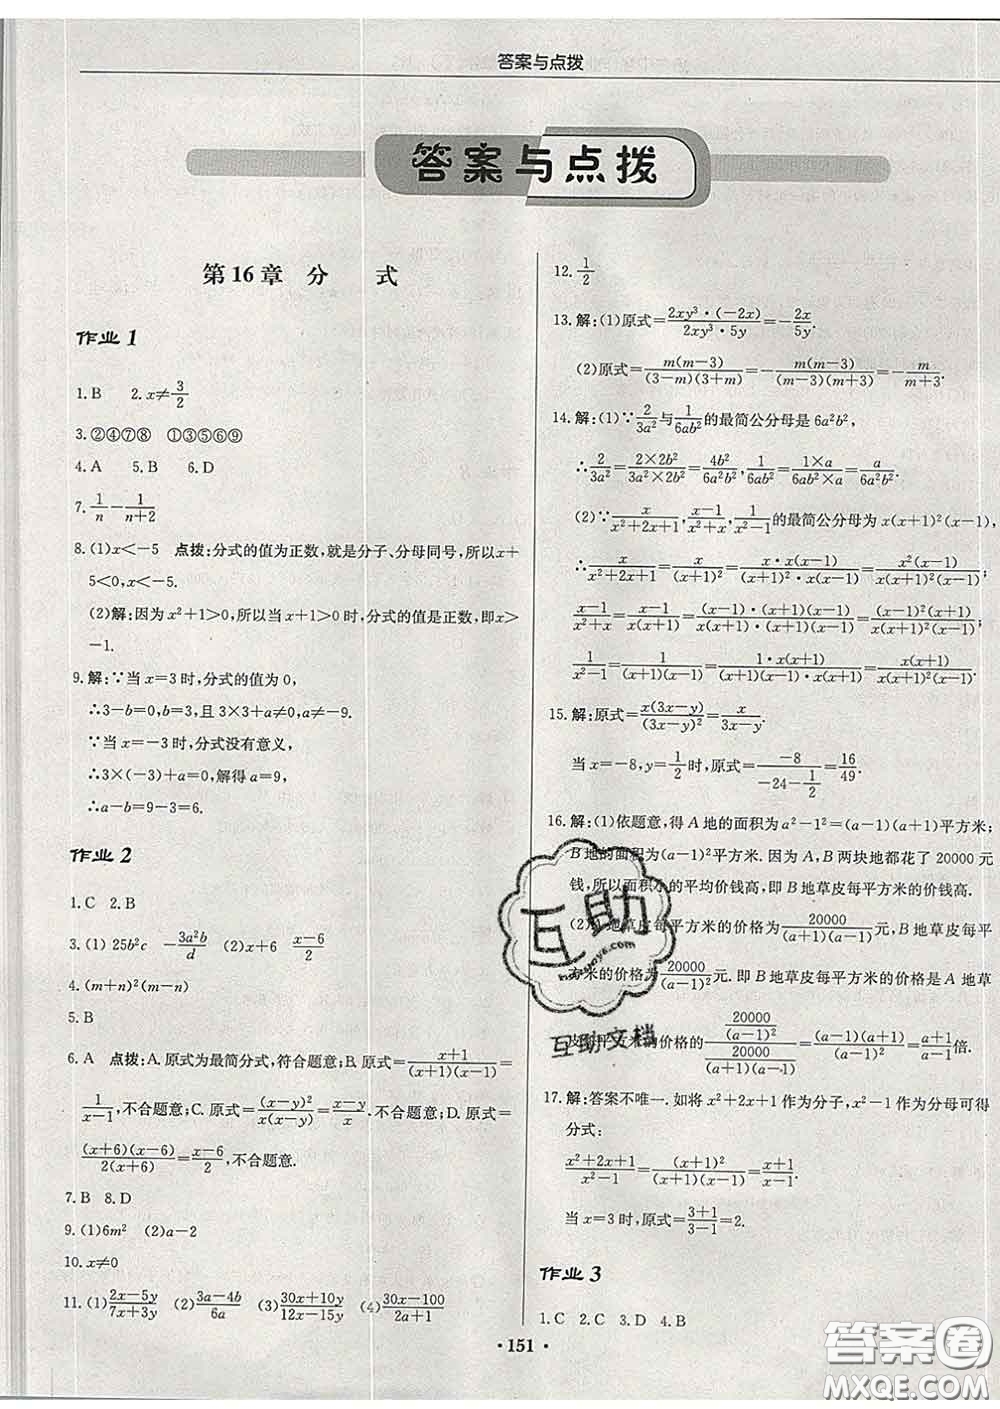 答案与点拨
答案与点拨
第16章 分 式
作业1
1.B 2.x≠3/2
3.②④⑦⑧ ①③⑤⑥⑨
4.A 5.B 6.D
7.1/n-1/(n+2)
8.(1)x<-5 点拨:分式的值为正数,就是分子、分母同号,所以x+
5<0,x<-5.
(2)解:因为x²+1>0,所以当x+1>0时,分式的值是正数,即x>
-1.
9.解:∵当x=3时,分式的值为0,
∴3-b=0,b=3,且3×3+a≠0,a≠-9.
∵当x=-3时,分式没有意义,
∴3×(-3)+a=0,解得a=9.
∴a-b=9-3=6.
作业2
1.C 2.B
3.(1)25b²c -3a²b/d (2)x+6 (x-6)/2
4.(m+n)²(m-n)
5.B
6.A 点拨:A.原式为最简分式,符合题意;B.原式=(x+1)/((x+1)(x-1))=
1/(x-1),不合题意;C.原式=(x-y)²/(x(x-y))=(x-y)/x,不合题意;D.原式=
(x+6)(x-6)/(2(x+6))=(x-6)/2,不合题意.
7.B 8.D
9.(1)6m² (2)a-2
10.x≠0
11.(1)(2x-5y)/(7x+3y) (2)(3a-4b)/(6a) (3)(30x+10y)/(12x-15y) (4)(30x-100)/(2a+1)
12.1/2
13.解:(1)原式=(2xy³·(-2x))/(2xy³·5y)=-2x/(5y).
(2)原式=m(m-3)/((3-m)(3+m))=-m(m-3)/((m-3)(m+3))=-m/(m+3).
14.解:(1)∵2/(3a²)与1/(6ab²)的最简公分母是6a²b²,
∴2/(3a²)=(2×2b²)/(3a²×2b²)=4b²/(6a²b²),1/(6ab²)=(1×a)/(6ab²×a)=a/(6a²b²).
(2)∵x/(x²+2x+1),(x-1)/(x²+x),1/(x²-1)的最简公分母为x(x+1)²(x-1),
∴x/(x²+2x+1)=x/(x+1)²=(x·x(x-1))/((x+1)²·x(x-1))=x²(x-1)/(x(x+1)²(x-1)),
(x-1)/(x²+x)=(x-1)/(x(x+1))=((x-1)·(x+1)(x-1))/(x(x+1)·(x+1)(x-1))=(x-1)²(x+1)/(x(x+1)²(x-1)),
1/(x²-1)=1/((x+1)(x-1))=(1·x(x+1))/((x+1)(x-1)·x(x+1))=x(x+1)/(x(x+1)²(x-1)).
15.解:原式=x(3x-y)/(3x-y)²=x/(3x-y).
当x=-8,y=1/2时,原式=-8/(-24-1/2)=16/49.
16.解:(1)依题意,得A地的面积为a²-1²=(a-1)(a+1)平方米;
B地的面积为(a-1)²平方米.因为A,B两块地都花了20000元
钱,所以面积小的平均价钱高,即B地草皮每平方米的价钱高.
(2)A地草皮每平方米的价格为20000/((a+1)(a-1))元,B地草皮每平
方米的价格为20000/(a-1)²元.即B地草皮每平方米的价格是A地草
皮每平方米的价格的(20000/(a-1)²)/(20000/((a+1)(a-1)))=(a-1)(a+1)/(a-1)²=(a+1)/(a-1)倍.
17.解:答案不唯一.如将x²+2x+1作为分子,x²-1作为分母可得
分式:
(x²+2x+1)/(x²-1)=(x+1)²/((x+1)(x-1))=(x+1)/(x-1).
当x=3时,原式=(3+1)/(3-1)=2.
作业3
1.C 2.C 3.D 4.B
·151·
互助
互助文档
答案卷
MXQE.COM